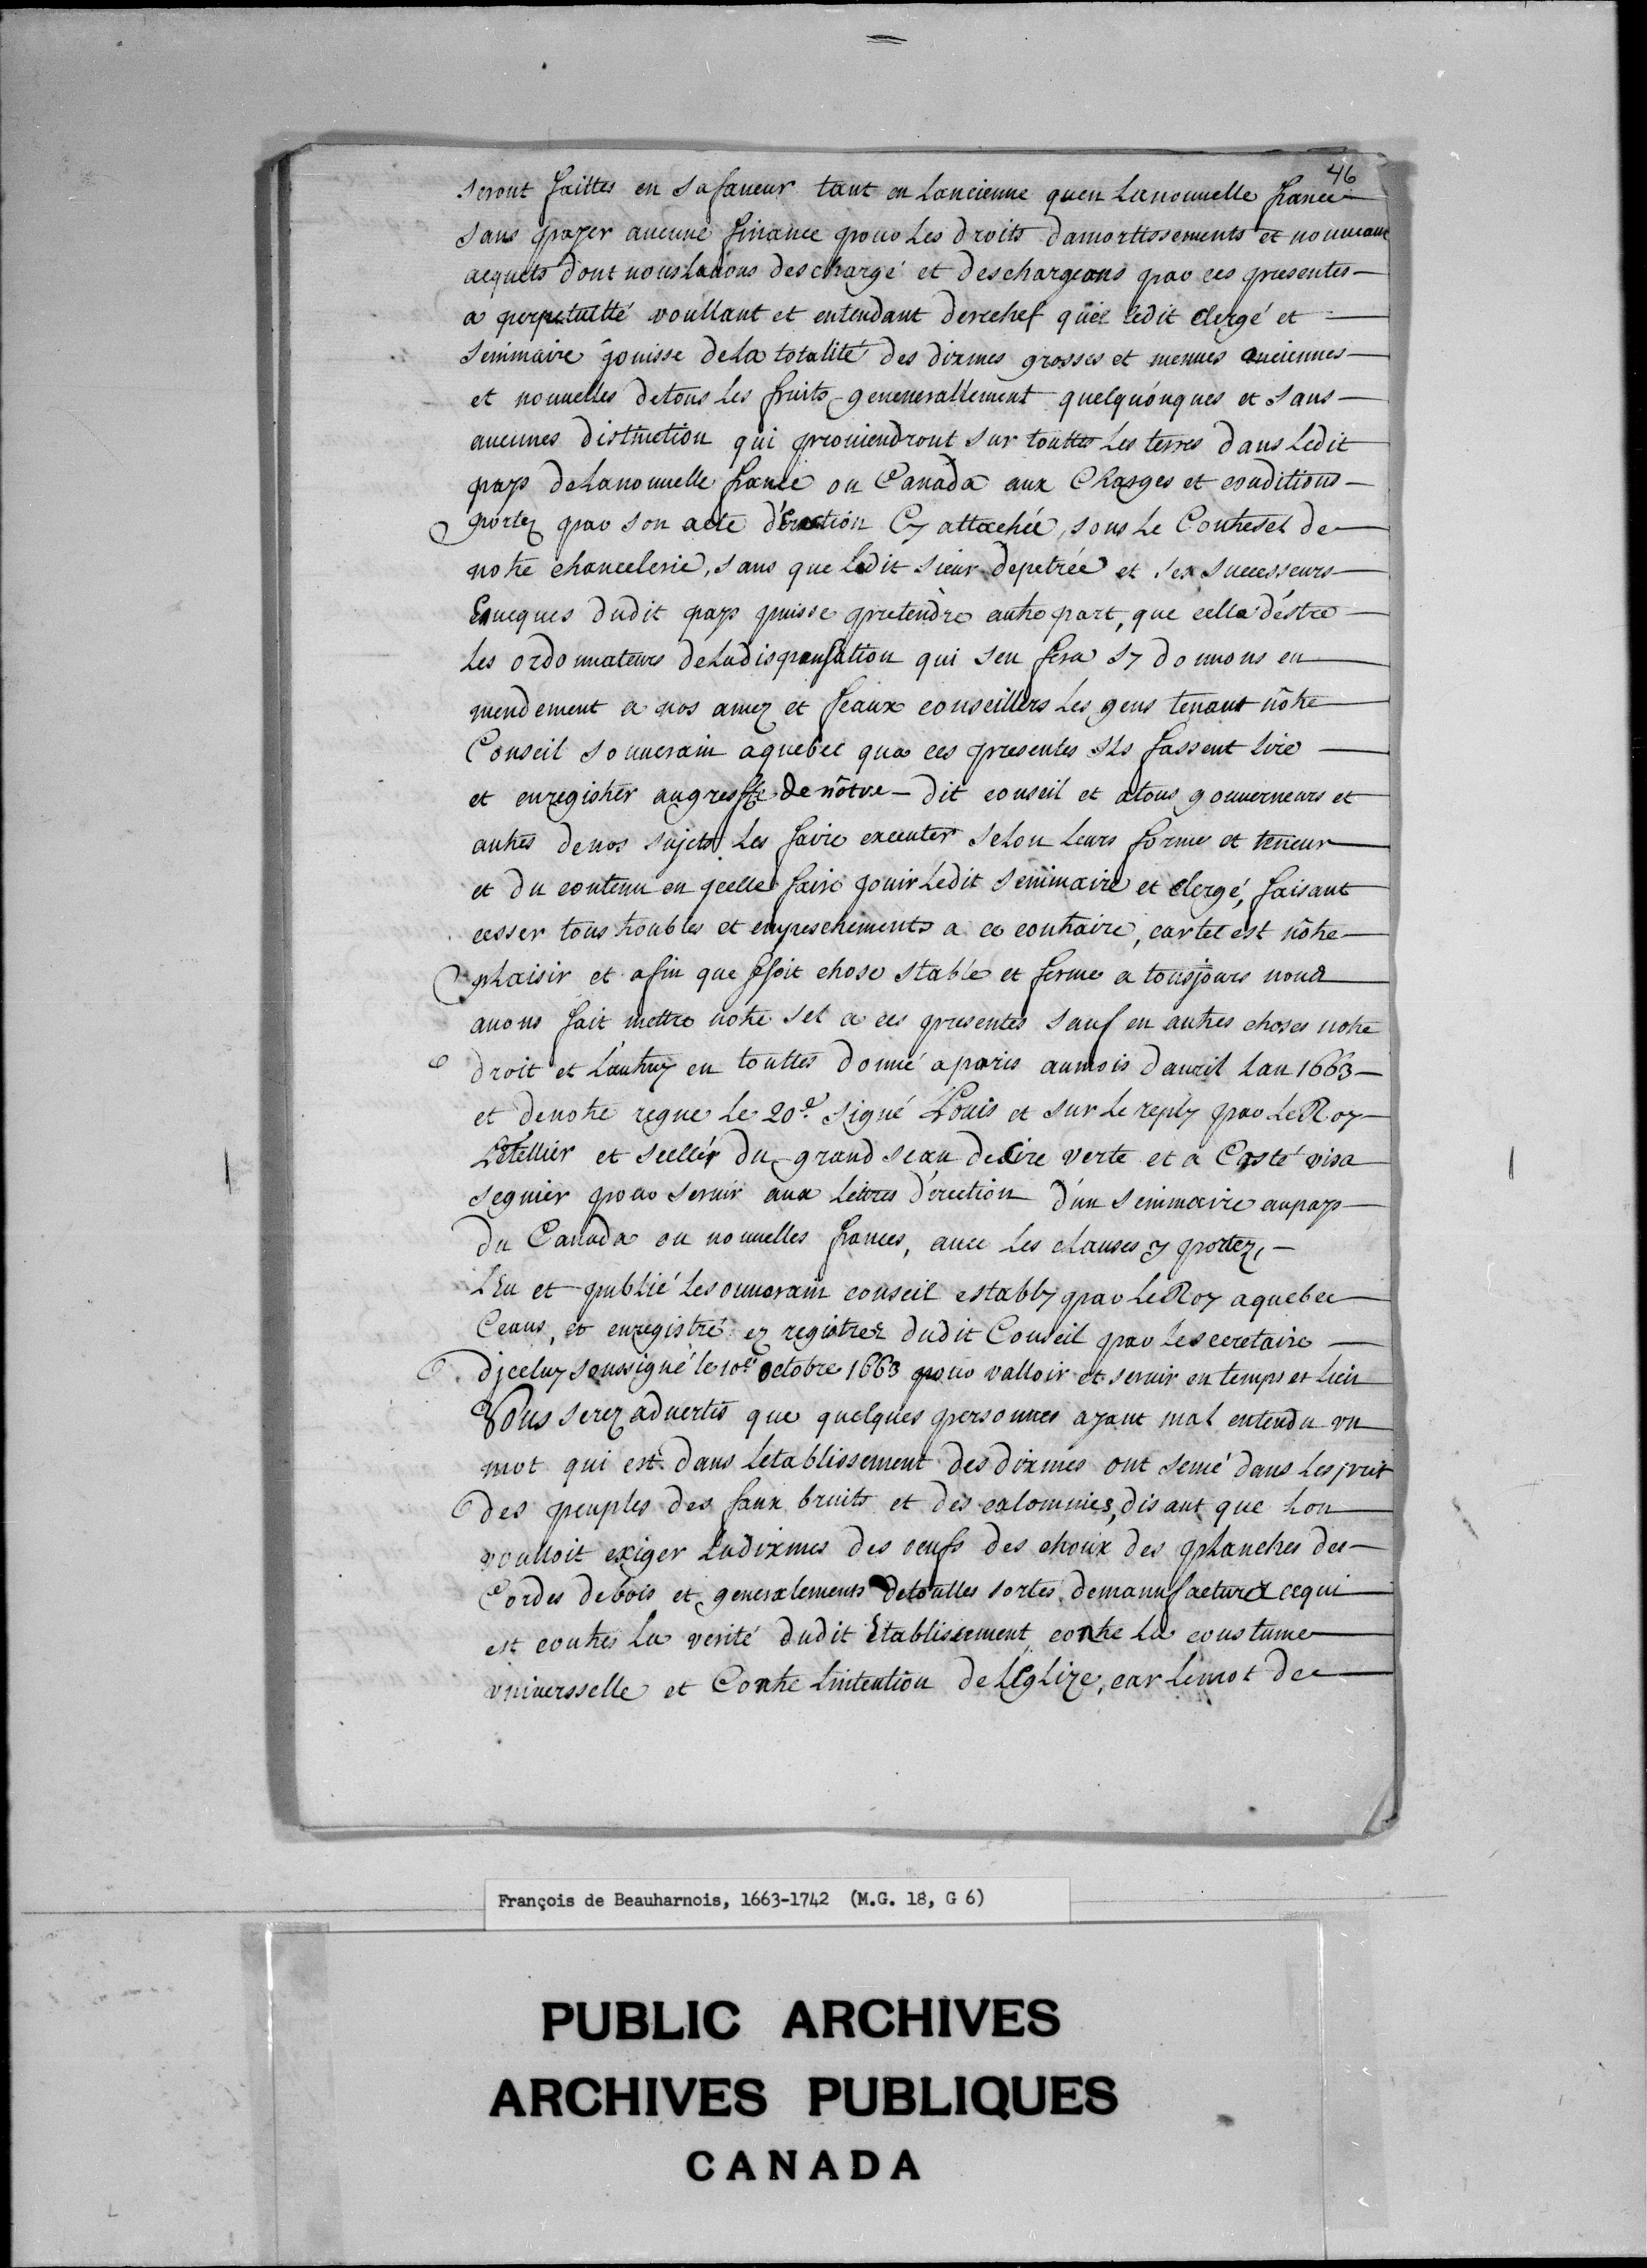 46
seront faittes en sa faueur tant en lancienne quen la nouuelle france
sans payer aucune finance pour les droits damortissements et nouueaux
acquets dont nous lauons deschargé et deschargeons par ces presentes
a perpetuitté voullant et entendant derechef que ledit clergé et
seminaire jouisse de la totalité des dixmes grosses et menues anciennes
et nouuelles de tous les fruits genenerallement quelquonques et sans
aucunes distinction qui prouiendront sur touttes les terres dans ledit
pays de la nouuelle france ou Canada aux Charges et conditions
portez par son acte d'erection Cy attachée, sous le Contresel de
notre chancelerie, sans que ledit sieur depetrée et ses successeurs
Eveques dudit pays puisse pretendre autre part, que celle d'éstre
les ordonnateurs de la dispensation qui sen fera Sy donnons en
mendement a nos amez et feaux conseillers les gens tenant nôtre
Conseil souuerain a quebec que ces presentes ils fassent lire
et enregistrer au greffe de nôtre dit conseil et a tous gouuerneurs et
autres de nos sujets les faire executer selon leurs forme et teneur
et du contenu en jcelle faire jouir ledit seminaire et clergé, faisant
cesser tous troubles et enpeschements a ce contraire, car tel est nôtre
plaisir et afin que ssoit chose stable et ferme a tousjours nous
auons fait mettre notre sel a ces presentes sauf en autres choses notre
droit et l'autruy en touttes donné a paris au mois dauril lan 1663
et de notre regne le 20e. signé Louis et sur le reply par le Roy
Letellier et scellér du grand seau de Cire verte et a Costé visa
seguier pour seruir aux lettres d'erection d'un seminaire au pays
du Canada ou nouuelles frances, auec les clauses y portez,
Leu et publié le souuerain conseil estably par le Roy a quebec
Ceans, et enregistré ez registrez dudit Conseil par le secretaire
djceluy soussigné le 10e octobre 1663 pour valloir et seruir en temps et lieu
Vous serez aduertis que quelques personnes ayant mal entendu vn
mot qui est dans letablissement des dixmes ont semé dans lesprit
des peuples des faux bruits et des calomnies, disant que lon
voulloit exiger la dixmes des oeufs des choux des planches des
Cordes de bois et generalements de touttes sortes de manufactures ce qui
est contres la verité dudit Etablissement contre la coustume
vniversselle et Contre lintention de l'Eglize, car le mot de
François de Beauharnois, 1663-1742 (M.G. 18, G 6)
PUBLIC ARCHIVES
ARCHIVES PUBLIQUES
CANADA